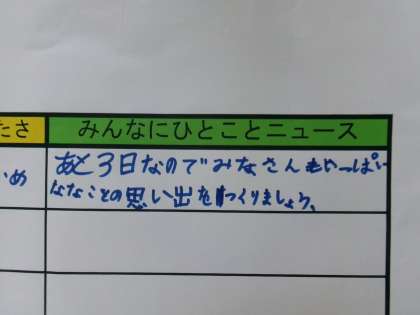 たさ
みんなにひとことニュース
いめ
あと3日なのでみなさんもいっぱい
ななことの思い出をつくりましょう。